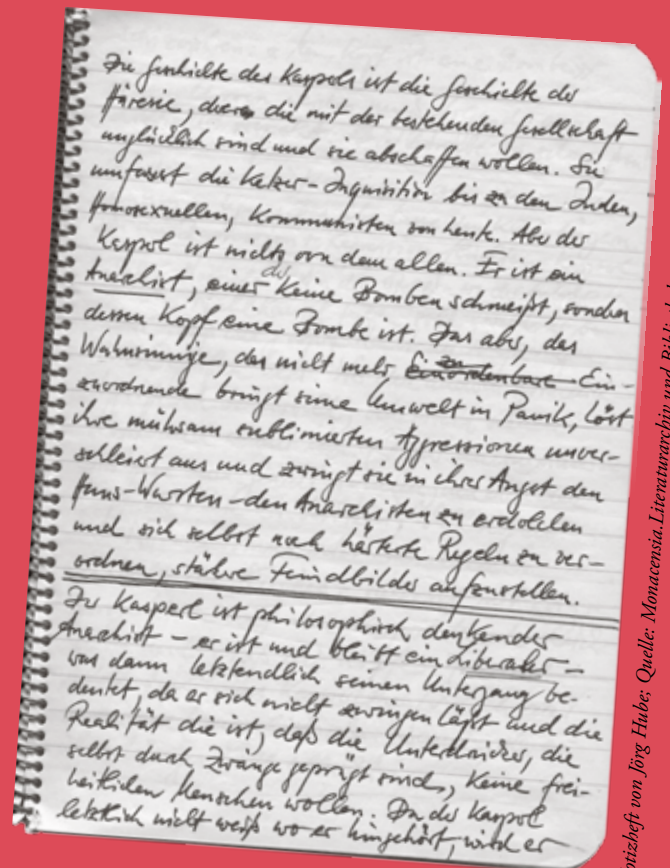 Die Geschichte des Kasperls ist die Geschichte der
Häresie, derer die mit der bestehenden Gesellschaft
unglücklich sind und sie abschaffen wollen. Sie
umfasst die Ketzer-Inquisition bis zu den Juden,
Homosexuellen, Kommunisten von heute. Aber der
Kasperl ist nichts von dem allen. Er ist ein
Anarchist, einer der keine Bomben schmeißt, sondern
dessen Kopf eine Bombe ist. Das aber, das
Wahnsinnige, das nicht mehr Ein-
zuordnende bringt seine Umwelt in Panik, löst
ihre mühsam sublimierten Aggressionen unver-
schleiert aus und zwingt sie in ihrer Angst den
Hans-Wursten-den Anarchisten zu erdolchen
und sich selbst noch härtere Regeln zu ver-
ordnen, stärkere Feindbilder aufzustellen.
Der Kasperl ist philosophisch denkender
Anarchist – er ist und bleibt ein Liberaler –
was dann letztendlich seinen Untergang be-
deutet, da er sich nicht zwingen läßt und die
Realität die ist, daß die Unterdrücker, die
selbst durch Zwänge geprägt sind, keine frei-
heitlichen Menschen wollen. Da der Kasperl
letztlich nicht weiß wo er hingehört, wird er
von Jörg Hube; Quelle: Monacensia.Literaturarchiv und